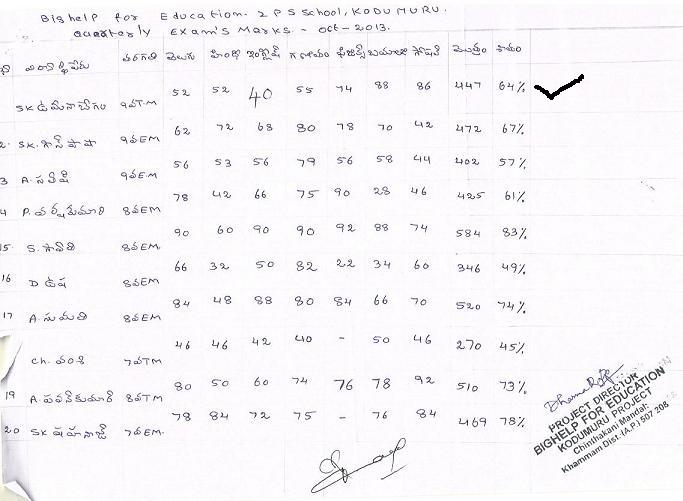 Bighelp for Education. Z P S School, KODUMURU.
Quarterly Exam's Marks. - Oct - 2013.
తరగతి తెలుగు హిందీ ఇంగ్లీష్ గణితం మొత్తం శాతం
52 52 40 55 74 88 86 447 64%
SK ఉమేరాబేగం 9వT.M
62 72 68 80 78 70 42 472 67%
2. SK. 9వEM
56 53 56 79 56 58 44 402 57%
3 A. 9వEM
78 42 66 75 90 28 46 425 61%
4 P. 8వEM
90 60 90 90 92 88 74 584 83%
15. S. 8వEM
66 32 50 82 22 34 60 346 49%
16 D ఉష 8వEM
84 48 88 80 84 66 70 520 74%
17 A. సుమతి 8వEM
46 46 42 40 - 50 46 270 45%
Ch. వంశీ 7వTM
80 50 60 74 76 78 92 510 73%
19 A. పవన్ కుమార్ 8వTM
78 84 72 75 - 76 84 469 78%
20 SK షహనాజ్ 7వEM
PROJECT DIRECTOR
BIGHELP FOR EDUCATION
KODUMURU PROJECT
Chinthakani Mandal,
Khammam Dist. (A.P.) 507 208